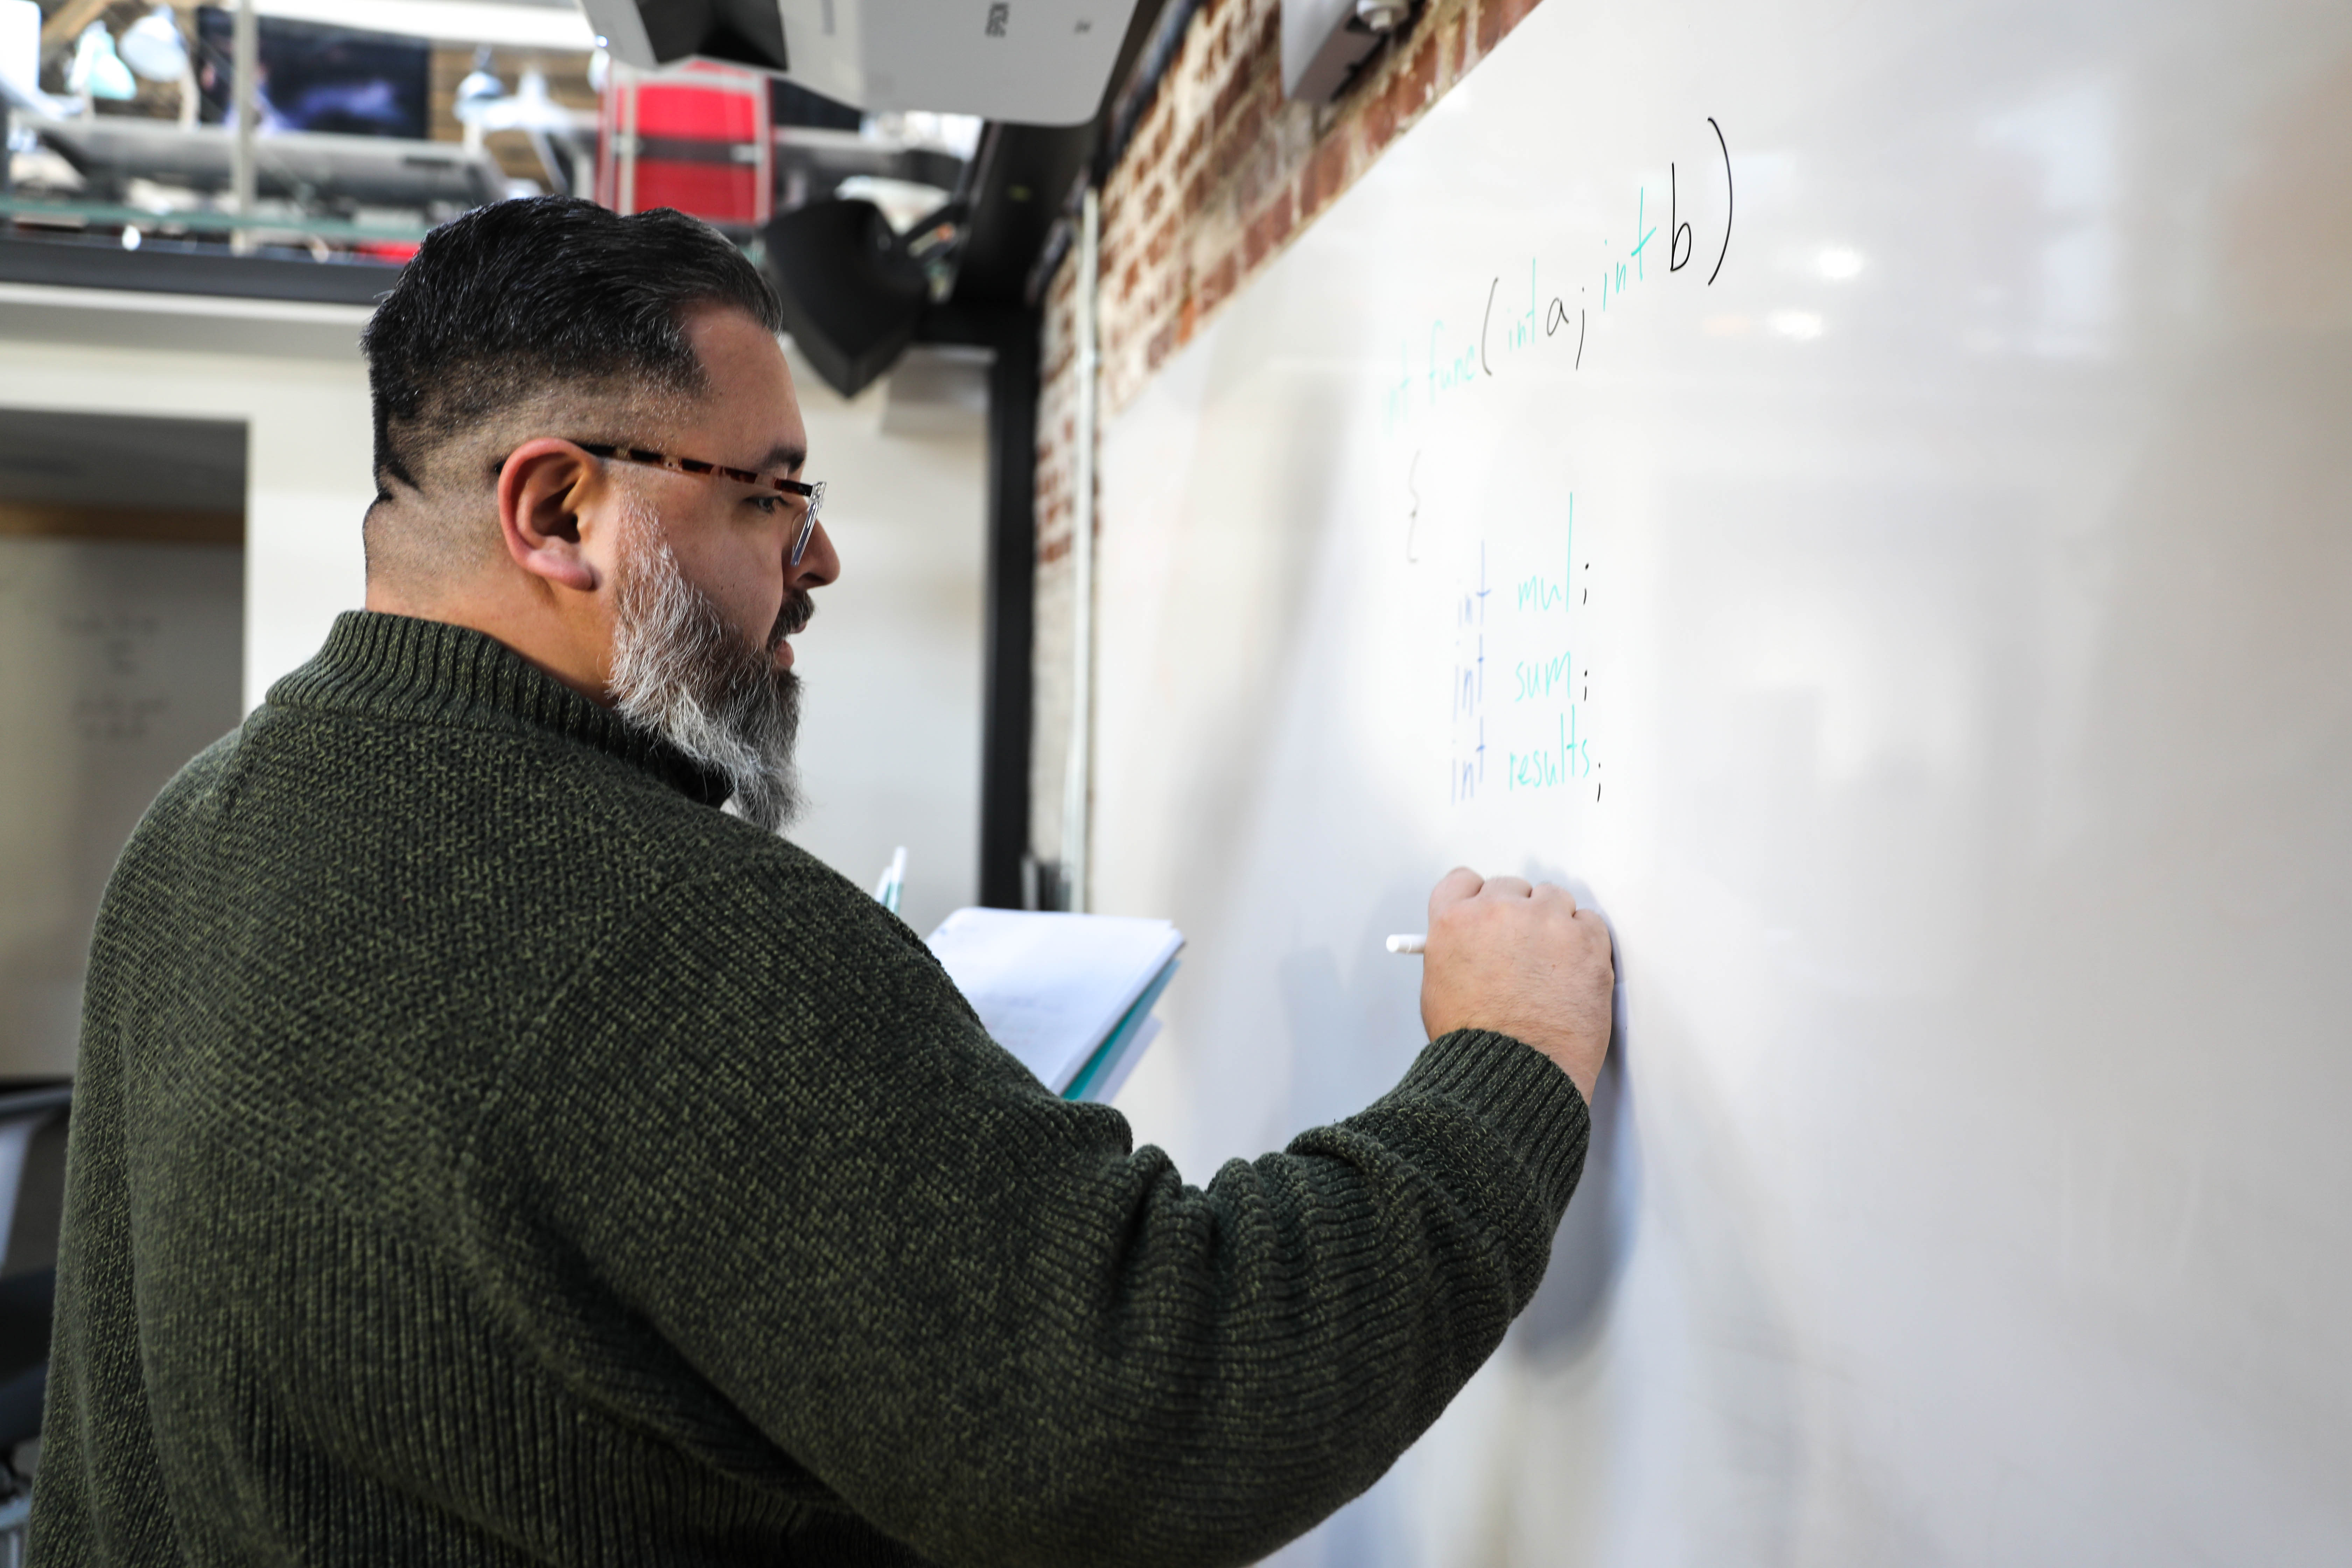 EPSON
int func(int a; int b)
{
int mul;
int sum;
int results;